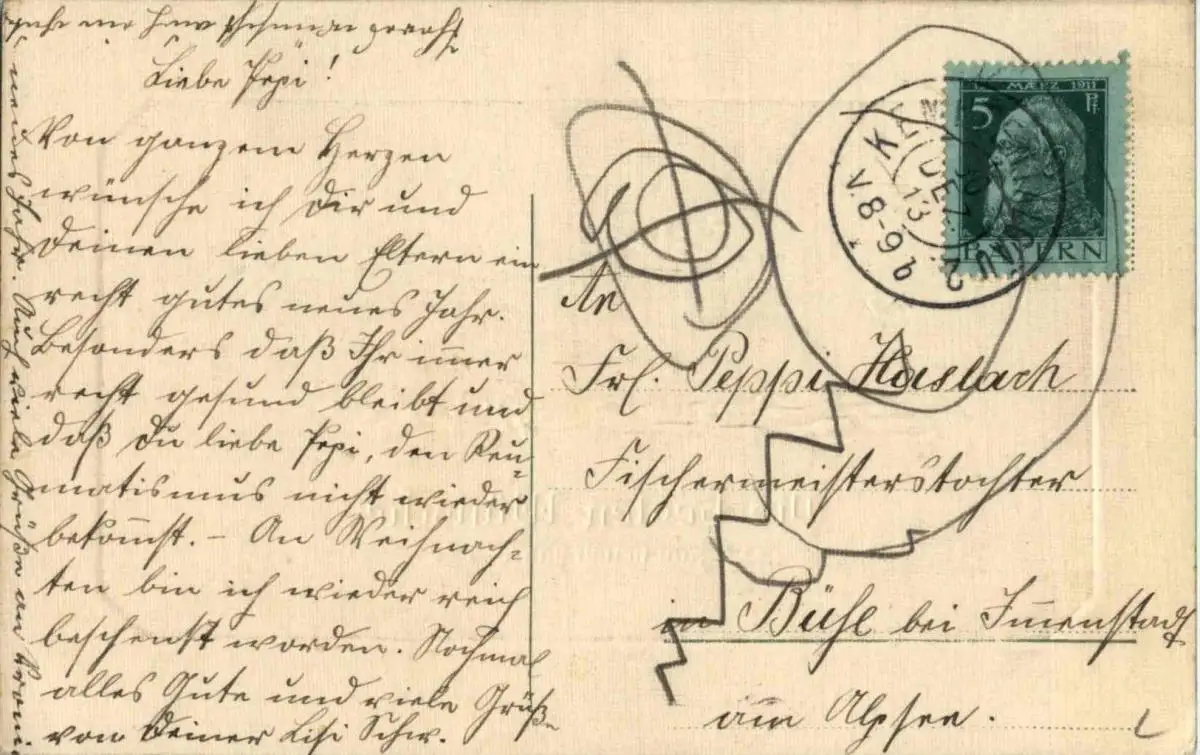 Liebe Pepi!
Von ganzem Herzen
wünsche ich Dir und
Deinen lieben Eltern ein
recht gutes neues Jahr.
Besonders daß Ihr immer
recht gesund bleibt und
daß Du liebe Pepi, den Reu-
matismus nicht wieder
bekommst. – An Weihnach-
ten bin ich wieder reich
beschenkt worden. Nochmal
alles Gute und viele Grüße
von Deiner Lisi Schw.
neues Jahr. Auch viele Grüße an
MAERZ 1911
5 Pf
BAYERN
KEMPTEN
30
DEZ
13
V.8-9
2
An
Frl. Peppi Haslach
Fischermeisterstochter
in Bühl bei Immenstadt
am Alpsee.